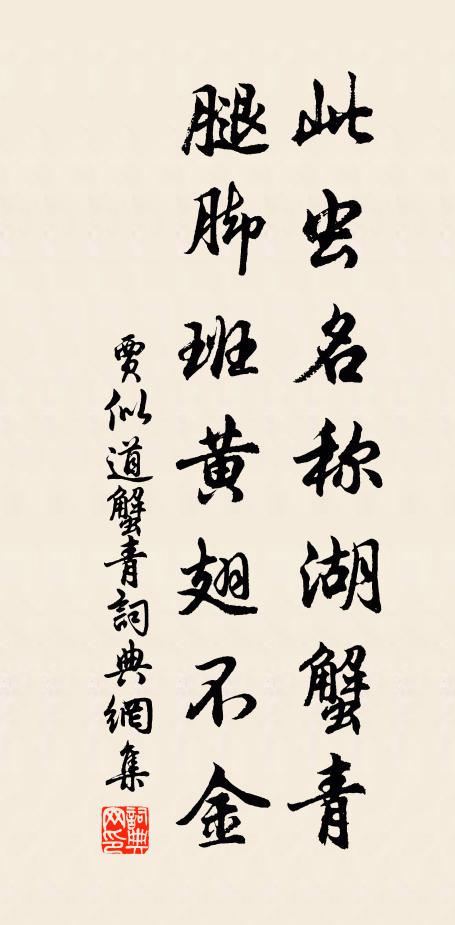 此虫名称湖蟹青
腿脚班黄翅不金
贾似道蟹青詞典網集
詞典网印